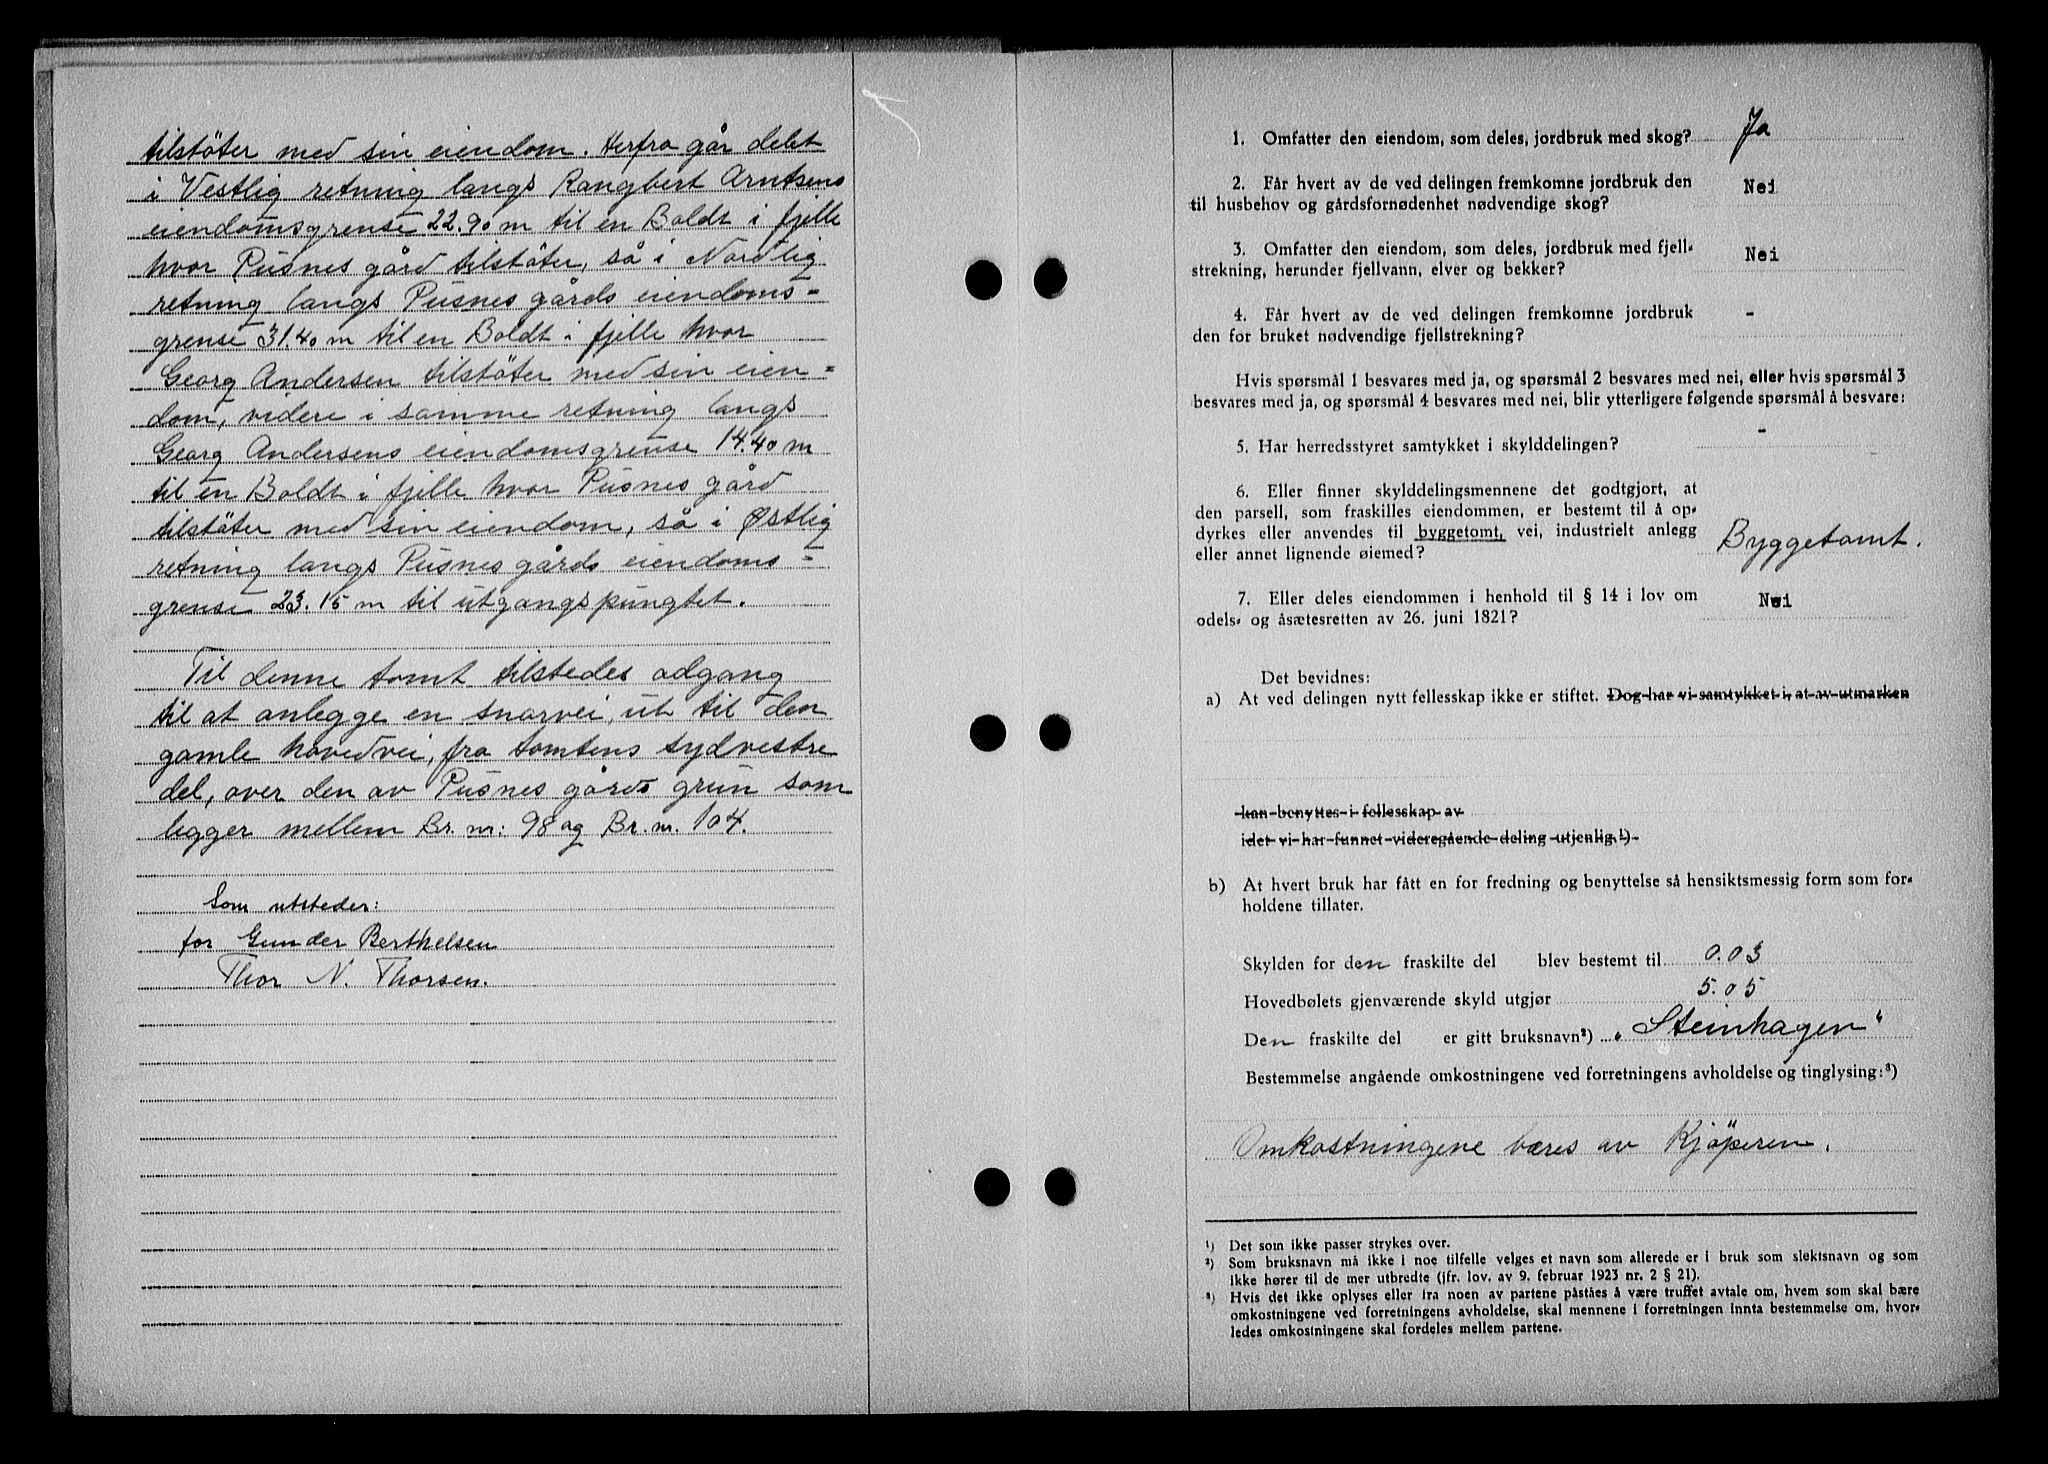 tilstöter med sin eiendom. Herfra går delet
i Vestlig retning langs Rangbert Arntsens
eiendomsgrense 22.90 m til en Boldt i fjelle
hvor Pusnes gård tilstöter, så i Nordlig
retning langs Pusnes gårds eiendoms-
grense 31.40 m til en Boldt i fjelle hvor
Georg Andersen tilstöter med sin eien-
dom, videre i samme retning langs
Georg Andersens eiendomsgrense 14.40 m
til en Boldt i fjelle hvor Pusnes gård
tilstöter med sin eiendom, så i Østlig
retning langs Pusnes gårds eiendoms-
grense 23.15 m til utgangspungtet.
Til denne tomt tilstedes adgang
til at anlegge en snarvei, ut til den
gamle hovedvei, fra tomtens sydvestre
del, over den av Pusnes gårds grun som
legger mellem Br. nr: 98 og Br. nr. 104.
Som utsteder:
for Gunder Berthelsen
Thor N. Thorsen.
1. Omfatter den eiendom, som deles, jordbruk med skog? Ja
2. Får hvert av de ved delingen fremkomne jordbruk den
til husbehov og gårdsfornødenhet nødvendige skog? Nei
3. Omfatter den eiendom, som deles, jordbruk med fjell-
strekning, herunder fjellvann, elver og bekker? Nei
4. Får hvert av de ved delingen fremkomne jordbruk
den for bruket nødvendige fjellstrekning? -
Hvis spørsmål 1 besvares med ja, og spørsmål 2 besvares med nei, eller hvis spørsmål 3
besvares med ja, og spørsmål 4 besvares med nei, blir ytterligere følgende spørsmål å besvare:
5. Har herredsstyret samtykket i skylddelingen? -
6. Eller finner skylddelingsmennene det godtgjort, at
den parsell, som fraskilles eiendommen, er bestemt til å op-
dyrkes eller anvendes til byggetomt, vei, industrielt anlegg
eller annet lignende øiemed? Byggetomt.
7. Eller deles eiendommen i henhold til § 14 i lov om
odels- og åsætesretten av 26. juni 1821? Nei
Det bevidnes:
a) At ved delingen nytt fellesskap ikke er stiftet. Dog har vi samtykket i, at av utmarken
kan benyttes i fellesskap av
idet vi har funnet videregående deling utjenlig.¹)
b) At hvert bruk har fått en for fredning og benyttelse så hensiktsmessig form som for-
holdene tillater.
Skylden for den fraskilte del blev bestemt til 0.03
Hovedbølets gjenværende skyld utgjør 5.05
Den fraskilte del er gitt bruksnavn²) „Steinhagen"
Bestemmelse angående omkostningene ved forretningens avholdelse og tinglysing:³)
Omkostningene bæres av Kjöperen.
¹) Det som ikke passer strykes over.
²) Som bruksnavn må ikke i noe tilfelle velges et navn som allerede er i bruk som slektsnavn og som
ikke hører til de mer utbredte (jfr. lov. av 9. februar 1923 nr. 2 § 21).
³) Hvis det ikke oplyses eller fra noen av partene påståes å være truffet avtale om, hvem som skal bære
omkostningene ved forretningens avholdelse, skal mennene i forretningen innta bestemmelse om, hvor-
ledes omkostningene skal fordeles mellem partene.